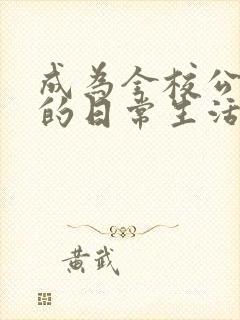 成为全校公
的日常生活
黄武